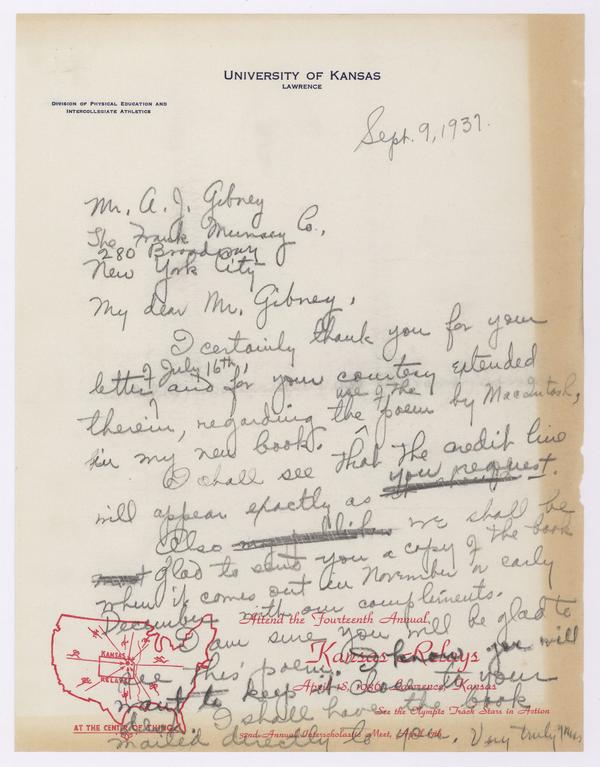 UNIVERSITY OF KANSAS
LAWRENCE
DIVISION OF PHYSICAL EDUCATION AND
INTERCOLLEGIATE ATHLETICS
Sept. 9, 1937.
Mr. A. J. Gibney
The Frank Munsey Co.,
280 Broadway
New York City
My dear Mr. Gibney,
I certainly thank you for your
letter of July 16th, and for your courtesy extended
therein, regarding the use of the poem by MacIntosh,
in my new book.
I shall see that the credit line
will appear exactly as you request.
Also we shall be
glad to send you a copy of the book
when it comes out in November or early
December with our compliments.
I am sure you will be glad to
see this poem. know you will
want to keep it close to your
desk. I shall have the book
mailed directly to you. Very truly yours,
Attend the Fourteenth Annual
Kansas Relays
April 18, 1936, Lawrence, Kansas
See the Olympic Track Stars in Action
32nd Annual Interscholastic Meet, April 17th
KANSAS
RELAYS
AT THE CENTER OF THINGS